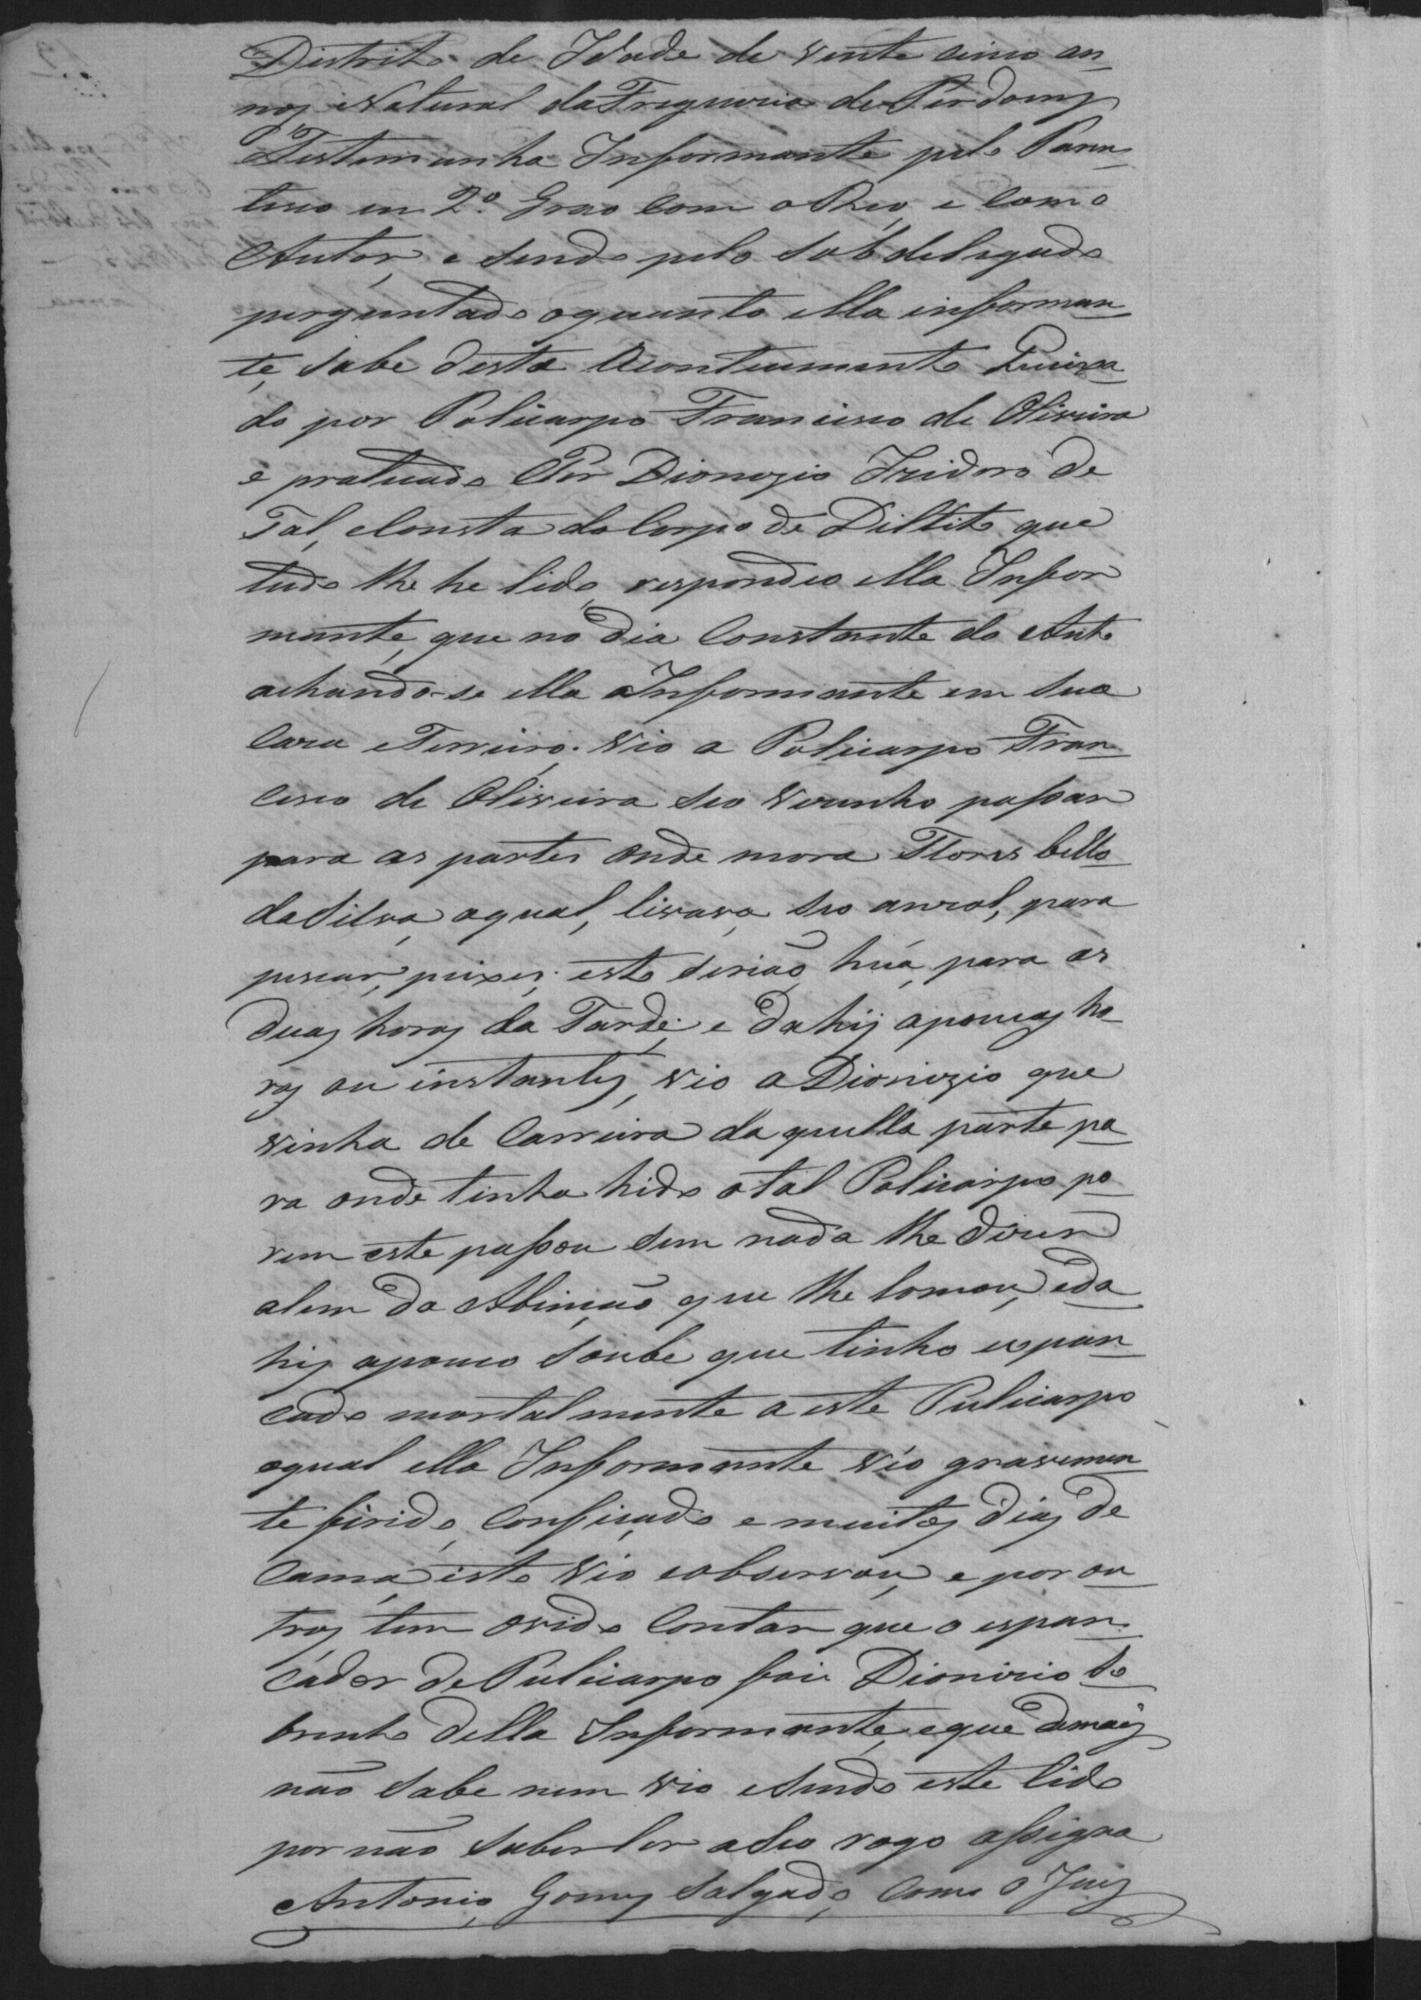 Distrito de Idade de vente cinco an_
nos Natural da Freguezia de Perdoens
Testemunha Informante pelo Paren_
tesco em 2º Grao com o Reo, e com o
Autor, e sendo pelo Subdelegado
perguntado oquanto ella informan_
te, sabe deste Acontecimento Queixa_
do por Policarpo Francisco de Oliveira
e praticado Por Dionozio Izidoro de
Tal, e Consta do Corpo de Dillito que
tudo lhe he lido, respondeo ella Infor
mante, que no dia Constante do Auto
achando-se ella aInformante em sua
Caza e Terreiro. Vio a Policarpo Fran_
cisco de Oliveira seo Vezinho passar
para as partes onde mora Flores bella
da Silva, aqual, livava, seo anzol, para
pescar, peixes, isto serião, húa, para as
duas horas da Tarde, e dahij apoucas ho_
ras ou instantes, vio a Dionizio que
vinha de Carreira da quella parte pa_
ra onde tinha hido otal Policarpo po_
rem este passou sem nada lhe dizer
alem da Abenção, que lhe tomou, eda_
hij apouco soube que tinha espan_
cado mortalmente a este Pulicarpo
oqual ella Informante vio gravemen_
te firido, Conficado e muitos dias de
Cama, isto vio eobservou, e por ou_
tros tem ovido Contar que o espan_
cador de Pulicarpo foi Dionizio so_
brinho della Informante, eque demais
não sabe nem vio esendo este lido
por não saber ler aseo rogo assigna
Antonio, Gomes Salgado, Como o Juiz